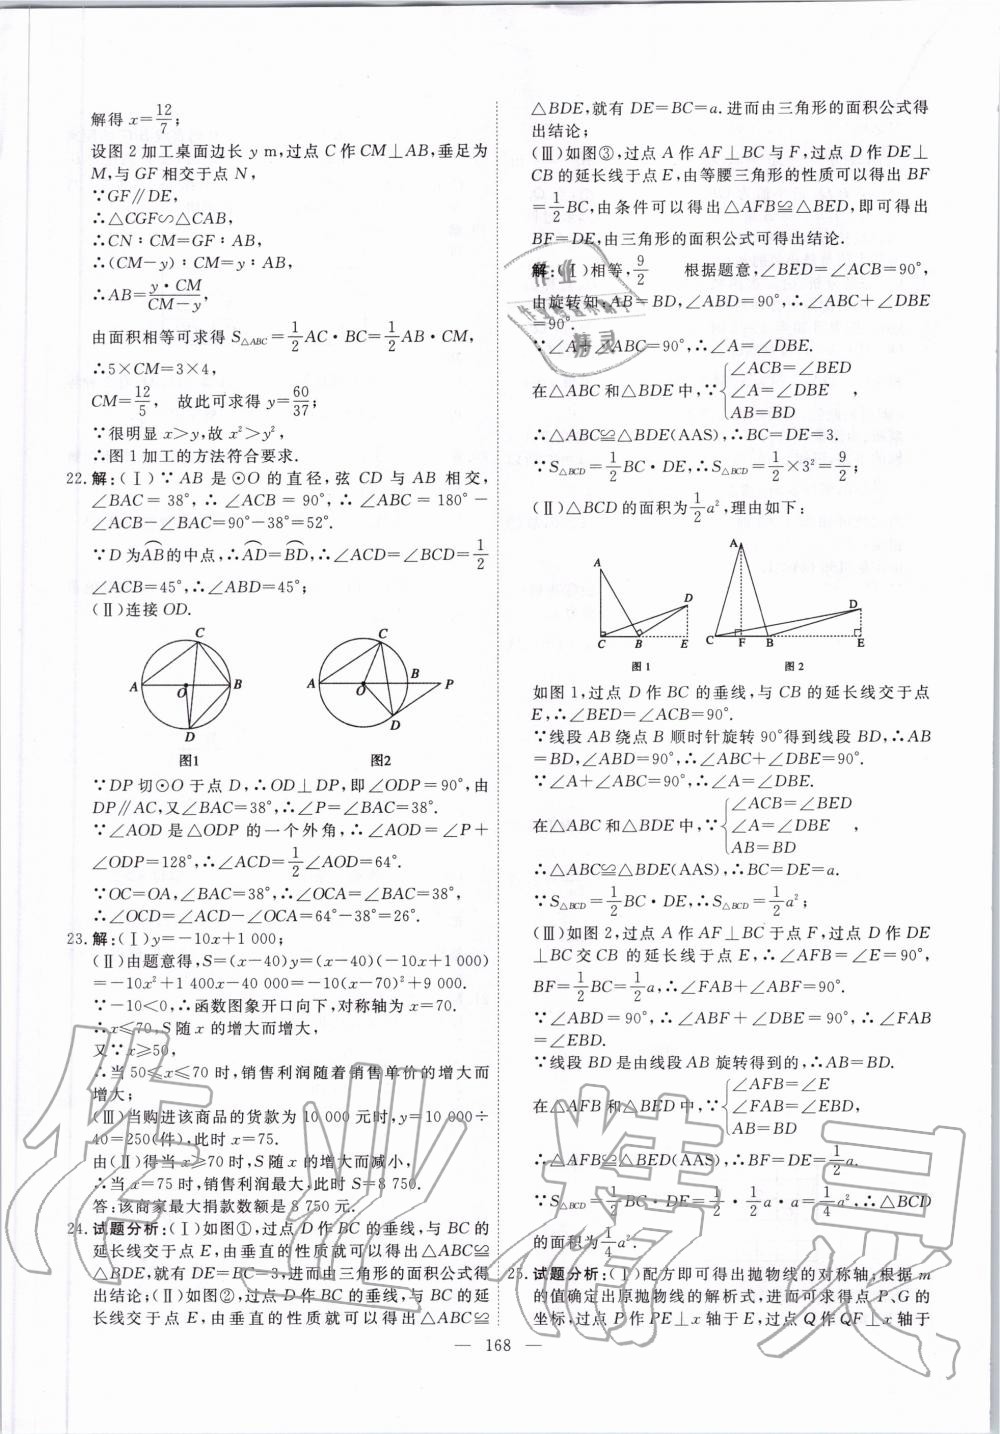 解得 x=12/7;
设图 2 加工桌面边长 y m,过点 C 作 CM⊥AB,垂足为
M,与 GF 相交于点 N,
∵GF∥DE,
∴△CGF∽△CAB,
∴CN∶CM=GF∶AB,
∴(CM-y)∶CM=y∶AB,
∴AB=y·CM/CM-y,
由面积相等可求得 S△ABC=1/2AC·BC=1/2AB·CM,
∴5×CM=3×4,
CM=12/5, 故此可求得 y=60/37;
∵很明显 x>y,故 x²>y²,
∴图 1 加工的方法符合要求.
22. 解:(Ⅰ)∵ AB 是 ⊙O 的直径,弦 CD 与 AB 相交,
∠BAC = 38°,∴ ∠ACB = 90°,∴ ∠ABC = 180° -
∠ACB-∠BAC=90°-38°=52°.
∵D 为AB的中点,∴AD=BD,∴∠ACD=∠BCD=1/2
∠ACB=45°,∴∠ABD=45°;
(Ⅱ)连接 OD.
C
A
O
B
D
图1
C
A
O
B
P
D
图2
∵DP 切⊙O 于点 D,∴OD⊥DP,即∠ODP=90°,由
DP∥AC,又∠BAC=38°,∴∠P=∠BAC=38°.
∵∠AOD 是△ODP 的一个外角,∴∠AOD=∠P+
∠ODP=128°,∴∠ACD=1/2∠AOD=64°.
∵OC=OA,∠BAC=38°,∴∠OCA=∠BAC=38°,
∴∠OCD=∠ACD-∠OCA=64°-38°=26°.
23. 解:(Ⅰ)y=-10x+1 000;
(Ⅱ)由题意得,S=(x-40)y=(x-40)(-10x+1 000)
=-10x²+1 400x-40 000=-10(x-70)²+9 000.
∵-10<0,∴函数图象开口向下,对称轴为 x=70.
∴x≤70,S随 x 的增大而增大,
又∵x≥50,
∴当 50≤x≤70 时,销售利润随着销售单价的增大而
增大;
(Ⅲ)当购进该商品的货款为 10 000 元时,y=10 000÷
40=250(件),此时 x=75.
由(Ⅱ)得当 x≥70 时,S随 x 的增大而减小,
∴当 x=75 时,销售利润最大,此时 S=8 750.
答:该商家最大捐款数额是 8 750 元.
24. 试题分析:(Ⅰ)如图①,过点 D 作 BC 的垂线,与 BC 的
延长线交于点 E,由垂直的性质就可以得出△ABC≌
△BDE,就有 DE=BC=3,进而由三角形的面积公式得
出结论;(Ⅱ)如图②,过点 D 作 BC 的垂线,与 BC 的延
长线交于点 E,由垂直的性质就可以得出△ABC≌
△BDE,就有 DE=BC=a.进而由三角形的面积公式得
出结论;
(Ⅲ)如图③,过点 A 作 AF⊥BC 与 F,过点 D 作 DE⊥
CB 的延长线于点 E,由等腰三角形的性质可以得出 BF
=1/2BC,由条件可以得出△AFB≌△BED,即可得出
BF=DE,由三角形的面积公式可得出结论.
解:(Ⅰ)相等,9/2 根据题意,∠BED=∠ACB=90°,
由旋转知:AB=BD,∠ABD=90°,∴∠ABC+∠DBE
=90°.
∵∠A+∠ABC=90°,∴∠A=∠DBE.
∠ACB=∠BED
在△ABC 和△BDE 中,∵{∠A=∠DBE ,
AB=BD
∴△ABC≌△BDE(AAS),∴BC=DE=3.
∵S△BCD=1/2BC·DE,∴S△BCD=1/2×3²=9/2;
(Ⅱ)△BCD 的面积为1/2a²,理由如下:
A
D
C
B
E
图 1
A
D
C
F
B
E
图 2
如图 1,过点 D 作 BC 的垂线,与 CB 的延长线交于点
E,∴∠BED=∠ACB=90°.
∵线段 AB 绕点 B 顺时针旋转 90°得到线段 BD,∴AB
=BD,∠ABD=90°,∴∠ABC+∠DBE=90°.
∵∠A+∠ABC=90°,∴∠A=∠DBE.
∠ACB=∠BED
在△ABC 和△BDE 中,∵{∠A=∠DBE ,
AB=BD
∴△ABC≌△BDE(AAS),∴BC=DE=a.
∵S△BCD=1/2BC·DE,∴S△BCD=1/2a²;
(Ⅲ)如图 2,过点 A 作 AF⊥BC 于点 F,过点 D 作 DE
⊥BC 交 CB 的延长线于点 E,∴∠AFB=∠E=90°,
BF=1/2BC=1/2a,∴∠FAB+∠ABF=90°.
∵∠ABD=90°,∴∠ABF+∠DBE=90°,∴∠FAB
=∠EBD.
∵线段 BD 是由线段 AB 旋转得到的,∴AB=BD.
∠AFB=∠E
在△AFB 和△BED 中,∵{∠FAB=∠EBD,
AB=BD
∴△AFB≌△BED(AAS),∴BF=DE=1/2a.
∵S△BCD=1/2BC·DE=1/2·1/2a·a=1/4a²,∴△BCD
的面积为1/4a².
25. 试题分析:(Ⅰ)配方即可得出抛物线的对称轴;根据 m
的值确定出原抛物线的解析式,进而可求得点 P、G 的
坐标,过点 P 作 PE⊥x 轴于 E,过点 Q 作 QF⊥x 轴于
— 168 —
作业精灵